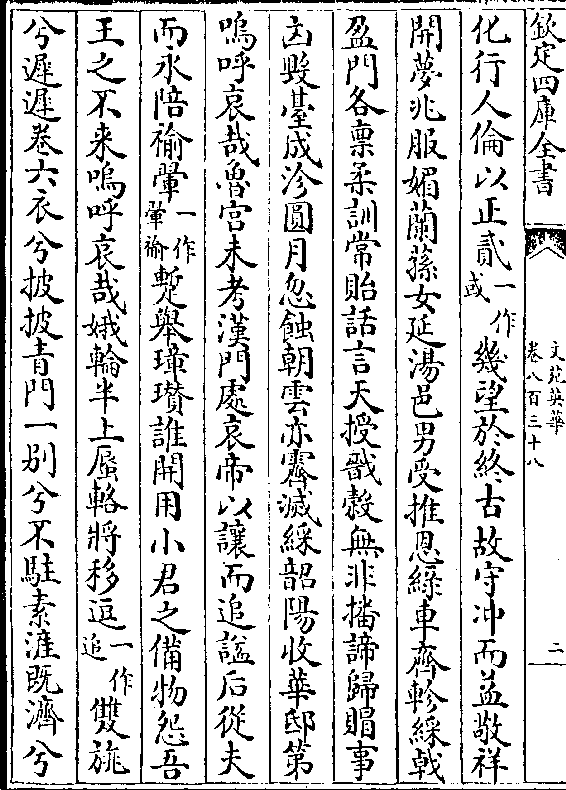 欽定四庫全書
文苑英華
卷八百三十八
二
化行人倫以正貳一作或幾望於終古故守冲而益敬祥
開夢兆服媚蘭蓀女延湯邑男受推恩綠車齊軫綵戟
盈門各稟柔訓常貽話言天授戩穀無非播諦歸賵事
凶毀臺成沴圓月忽蝕朝雲亦霽滅綵韶陽收華邸第
嗚呼哀哉魯宮未考漢門處哀帝以讓而追諡后從夫
而永陪褕翬一作翬褕蹔舉璋瓚誰開用小君之備物怨吾
王之不来嗚呼哀哉娥輪半上蜃輅將移逗一作追雙旐
兮遲遲卷六衣兮披披青門一别兮不駐素滻既濟兮